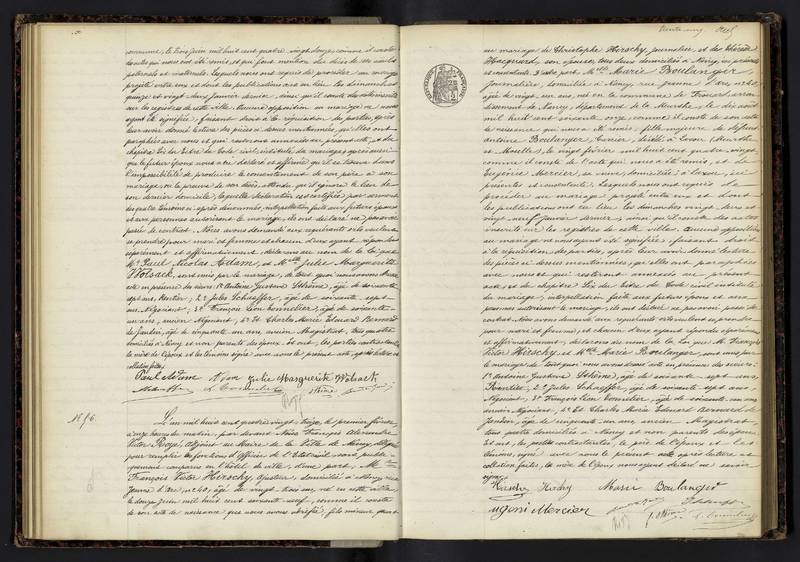 commune, le trois juin mil huit cent quatre vingt douze comme il conste
projeté entre eux et dont les publications ont eu lieu les dimanches
quinze et vingt deux janvier dernier, ainsi qu'il conste des
sur les registres de cette ville. Aucune opposition au mariage ne nous
ayant été signifiée, faisant droit à la réquisition des parties, après
leur avoir donné lecture des pièces ci dessus mentionnées, qu'elles ont
paraphées avec nous et qui resteront annexées au présent acte, et du
chapitre VI du titre du Code civil, intitulé du mariage,
que le futur époux nous a déclaré et affirmé qu'il se trouve dans
l'impossibilité de produire le consentement de son père à son
mariage, ou la preuve de son décès, attendu qu'il ignore le lieu de
son dernier domicile, laquelle déclaration est certifiée par serment
et aux personnes autorisant le mariage, ils ont déclaré ne pas avoir
passé de contrat. Nous avons demandé aux requérants s'ils veulent
se prendre pour mari et femme et chacun d'eux ayant répondu
séparément et affirmativement, déclarons au nom de la loi que
Mr Paul Nicolas Adam, et Melle Julie Marguerite
Wolsack, sont unis par le mariage, de tout quoi nous avons dressé
acte en présence des sieurs: 1° Antoine Gustave Sthème, âgé de soixante
sept ans, Rentier; 2° Jules Schaeffer, âgé de soixante sept
ans, Négociant; 3° François Léon Connelier, âgé de soixante
un ans, ancien Négociant; 4° Et Charles Marie Edouard Bernard
de Jandin, âgé de cinquante un ans, ancien Magistrat, tous quatre
domiciliés à Nancy et non parents des époux. Et ont, les parties contractantes,
la mère de l'époux et les témoins signé avec nous le présent acte, après lecture et
collation faites.
Paul Adam Adam Julie Marguerite Wolsack
N° 96.
L'an mil huit cent quatre vingt treize, le premier février,
à onze heures du matin, par devant Nous François Alexandre
Victor Roye, adjoint au Maire de la Ville de Nancy, délégué
pour remplir les fonctions d'Officier de l'Etat civil, sont
comparus en l'hôtel de ville, d'une part, Mr
François Victor Hirschy, ajusteur, domicilié à Nancy, rue
Jeanne d'Arc n° 40, âgé de vingt trois ans, né en cette ville,
le douze juin mil huit cent soixante neuf, comme il conste
de son acte de naissance que nous avons vérifié, fils mineur quant
au mariage de Christophe Hirschy, journalier, et de Thérèse
Hacquard, son épouse, tous deux domiciliés à Nancy, ici présents
et consentants. D'autre part, Melle Marie Boulanger,
journalière, domiciliée à Nancy, rue Jeanne d'Arc n° 40,
âgée de vingt un ans, née en la commune de Frouard, arron
dissement de Nancy, département de la Meurthe, le dix août
mil huit cent soixante onze, comme il conste de son acte
de naissance qui nous a été remis, fille majeure de défunt
Antoine Boulanger, décédé à Laxou, Meurthe
et Moselle, le vingt février mil huit cent quatre vingt,
comme il conste de l'acte qui nous a été remis, et de
Eugénie Mercier, sa veuve, domiciliée à Laxou, ici
présente et consentante. Lesquels nous ont requis de
procéder au mariage projeté entre eux et dont
les publications ont eu lieu les dimanches vingt deux et
vingt neuf janvier dernier, ainsi qu'il conste des actes
inscrits sur les registres de cette ville. Aucune opposition
au mariage ne nous ayant été signifiée, faisant droit
à la réquisition des parties, après leur avoir donné lecture
des pièces ci dessus mentionnées, qu'elles ont paraphées
avec nous et qui resteront annexées au présent
acte, et du chapitre VI du titre du Code civil intitulé
du mariage, interpellation faite aux futurs époux et aux
personnes autorisant le mariage, ils ont déclaré ne pas avoir passé de
contrat. Nous avons demandé aux requérants s'ils veulent se prendre
pour mari et femme, et chacun d'eux ayant répondu séparément
et affirmativement, déclarons au nom de la Loi que Mr François
Victor Hirschy, et Melle Marie Boulanger, sont unis par
le mariage, de tout quoi nous avons dressé acte en présence des sieurs:
1° Antoine Gustave Sthème, âgé de soixante sept ans,
Rentier; 2° Jules Schaeffer, âgé de soixante sept ans,
Négociant; 3° François Léon Connelier, âgé de soixante un ans
ancien Négociant; 4° Et Charles Marie Edouard Bernard de
Jandin, âgé de cinquante un ans, ancien Magistrat,
tous quatre domiciliés à Nancy et non parents des époux.
Et ont, les parties contractantes, le père de l'époux et les
témoins, signé avec nous le présent acte après lecture et
collation faites, la mère de l'époux nous ayant déclaré ne savoir
signer.
Hirschy Hirschy Marie Boulanger
Eugéni Mercier